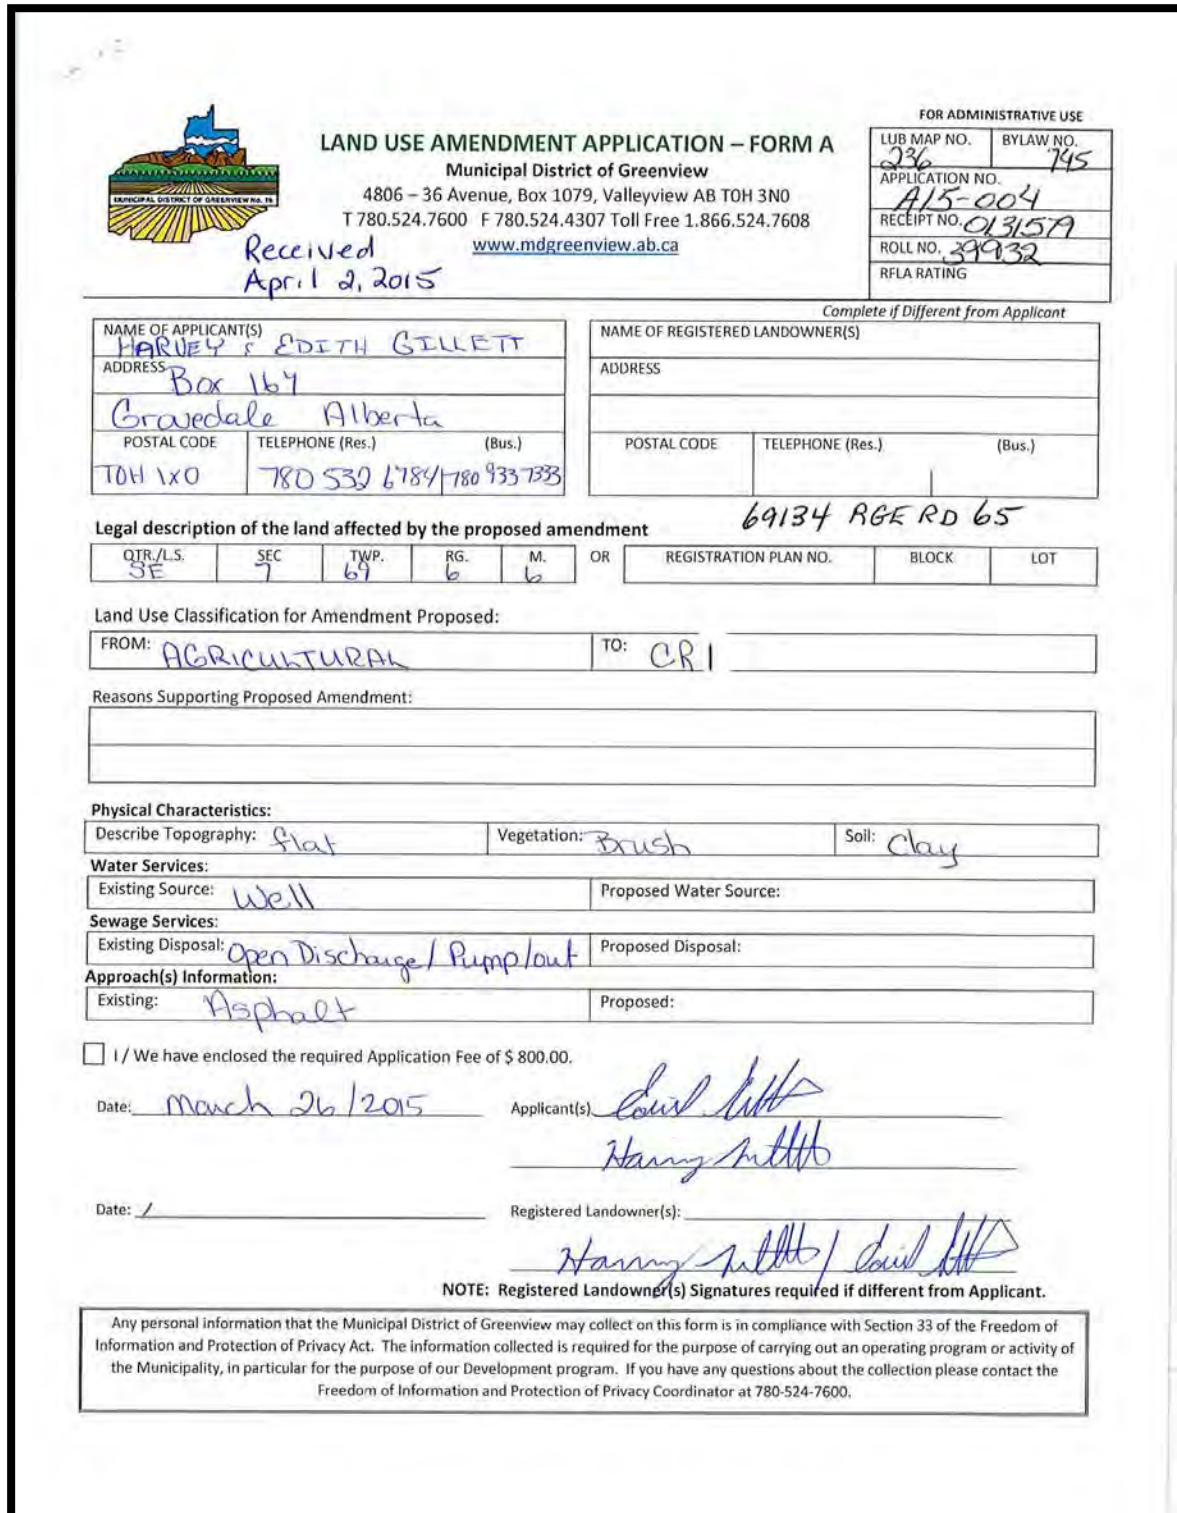 FOR ADMINISTRATIVE USE
LUB MAP NO. 236 BYLAW NO. 745
APPLICATION NO. A15-004
RECEIPT NO. 0131579
ROLL NO. 39932
RFLA RATING
MUNICIPAL DISTRICT OF GREENVIEW No. 16
LAND USE AMENDMENT APPLICATION – FORM A
Municipal District of Greenview
4806 – 36 Avenue, Box 1079, Valleyview AB T0H 3N0
T 780.524.7600 F 780.524.4307 Toll Free 1.866.524.7608
www.mdgreenview.ab.ca
Received
April 2, 2015
Complete if Different from Applicant
NAME OF APPLICANT(S)
HARVEY & EDITH GILLETT
ADDRESS
Box 164
Grovedale Alberta
POSTAL CODE TELEPHONE (Res.) (Bus.)
T0H 1X0 780 532 6784 780 933 7333
NAME OF REGISTERED LANDOWNER(S)
ADDRESS
POSTAL CODE TELEPHONE (Res.) (Bus.)
69134 RGE RD 65
Legal description of the land affected by the proposed amendment
QTR./L.S. SEC TWP. RG. M. OR REGISTRATION PLAN NO. BLOCK LOT
SE 7 69 6 6
Land Use Classification for Amendment Proposed:
FROM: AGRICULTURAL TO: CR1
Reasons Supporting Proposed Amendment:
Physical Characteristics:
Describe Topography: flat Vegetation: Brush Soil: Clay
Water Services:
Existing Source: Well Proposed Water Source:
Sewage Services:
Existing Disposal: Open Discharge / Pump/out Proposed Disposal:
Approach(s) Information:
Existing: Asphalt Proposed:
I / We have enclosed the required Application Fee of $ 800.00.
Date: March 26/2015 Applicant(s)
Date: / Registered Landowner(s):
NOTE: Registered Landowner(s) Signatures required if different from Applicant.
Any personal information that the Municipal District of Greenview may collect on this form is in compliance with Section 33 of the Freedom of
Information and Protection of Privacy Act. The information collected is required for the purpose of carrying out an operating program or activity of
the Municipality, in particular for the purpose of our Development program. If you have any questions about the collection please contact the
Freedom of Information and Protection of Privacy Coordinator at 780-524-7600.